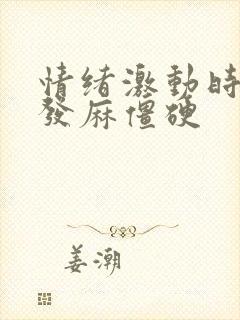 情绪激動時
發麻僵硬
姜潮